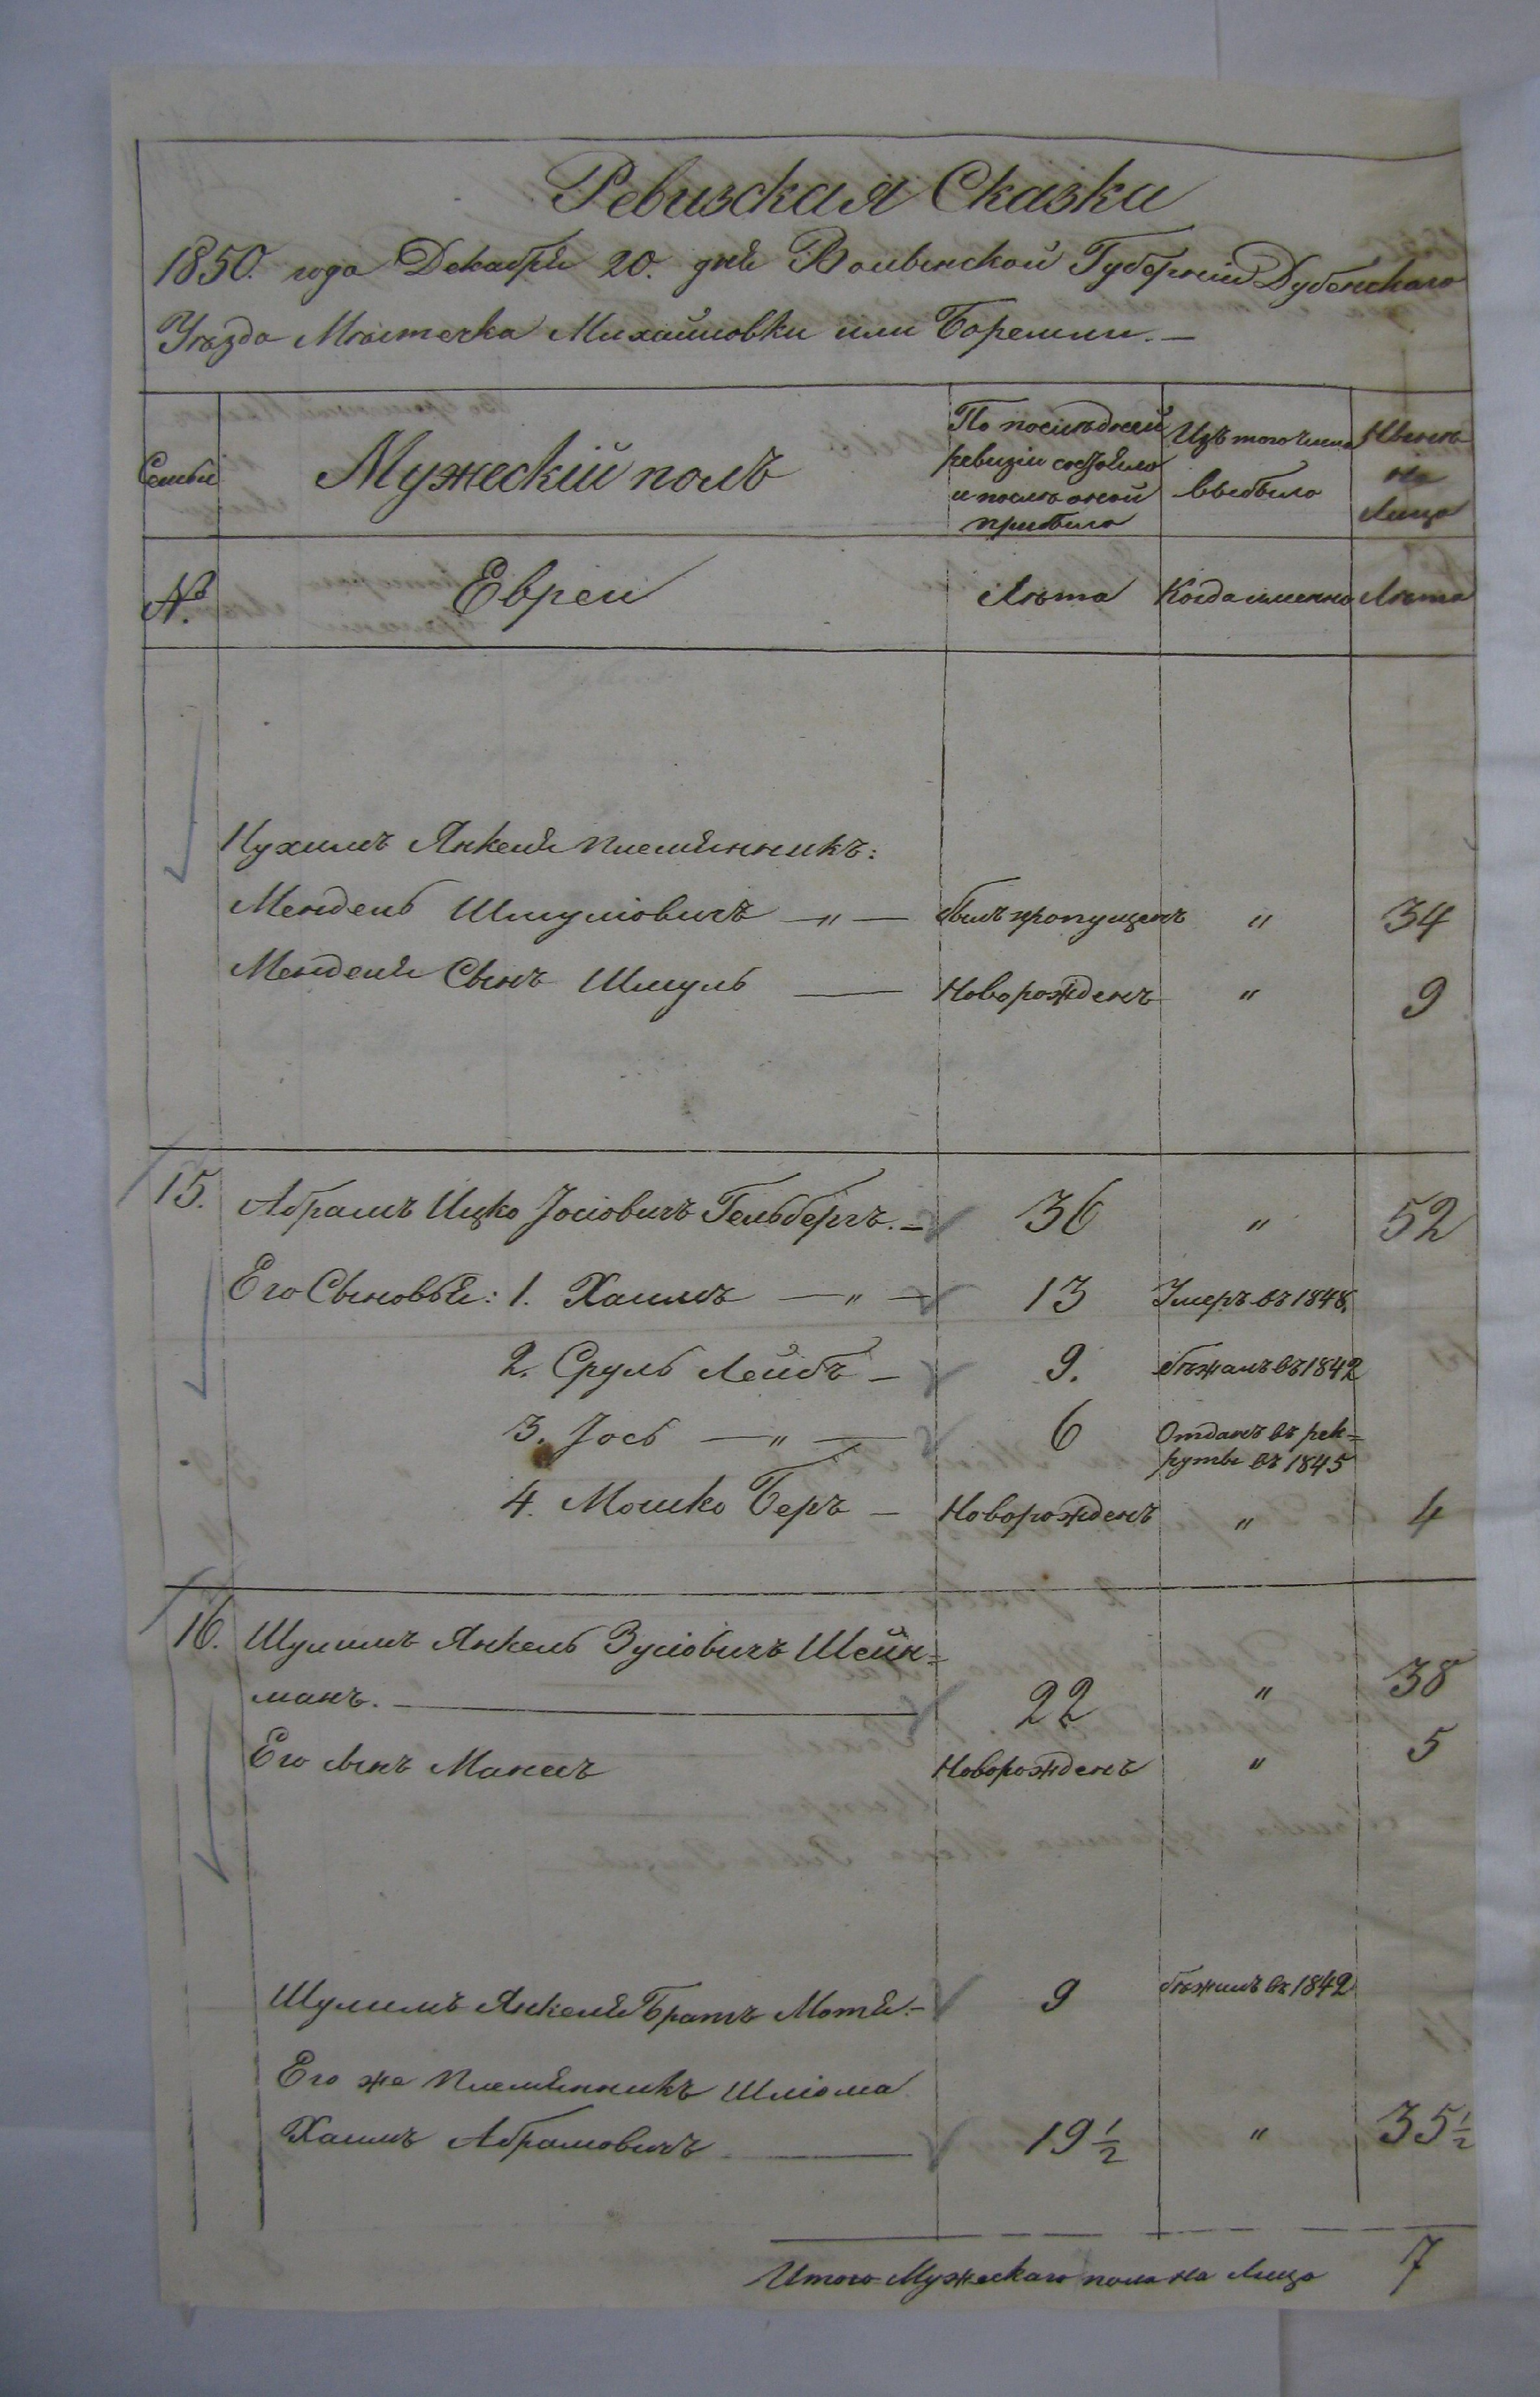 Ревизская Сказка
1850. года Декабря 20. дня Волынской Губернии Дубенскаго
Уѣзда Мѣстечка Михайловки или Боремли. —
Семьи
Мужескій полъ
По послѣдней ревизіи состояло и послѣ оной прибыло
Изъ того числа выбыло
Нынѣ на Лицо
№
Евреи
Лѣта
Когда именно
Лѣта
Нухимъ Янкеля племянникъ:
Мендель Шмуліовичъ — „ — былъ пропущенъ „ 34
Менделя Сынъ Шмуль — Новорожденъ „ 9
15. Абрамъ Ицко Іосіовичъ Гельбергъ. — 36 „ 52
Его Сыновья: 1. Хаимъ — „ — 13 Умеръ въ 1848.
2. Сруль Лейбъ — 9. бѣжалъ въ 1842
3. Іось — „ — 6 Отданъ въ рек=
руты въ 1845
4. Мошко Беръ — Новорожденъ „ 4
16. Шулимъ Янкель Зусіовичъ Шейн=
манъ. — 22 „ 38
Его сынъ Манишъ Новорожденъ „ 5
Шулимъ Янкеля Братъ Мотя. — 9 бѣжалъ въ 1842
Его же племянникъ Шліома
Хаимъ Абрамовичъ — 19 1/2 „ 35 1/2
Итого Мужескаго пола на Лицо 7